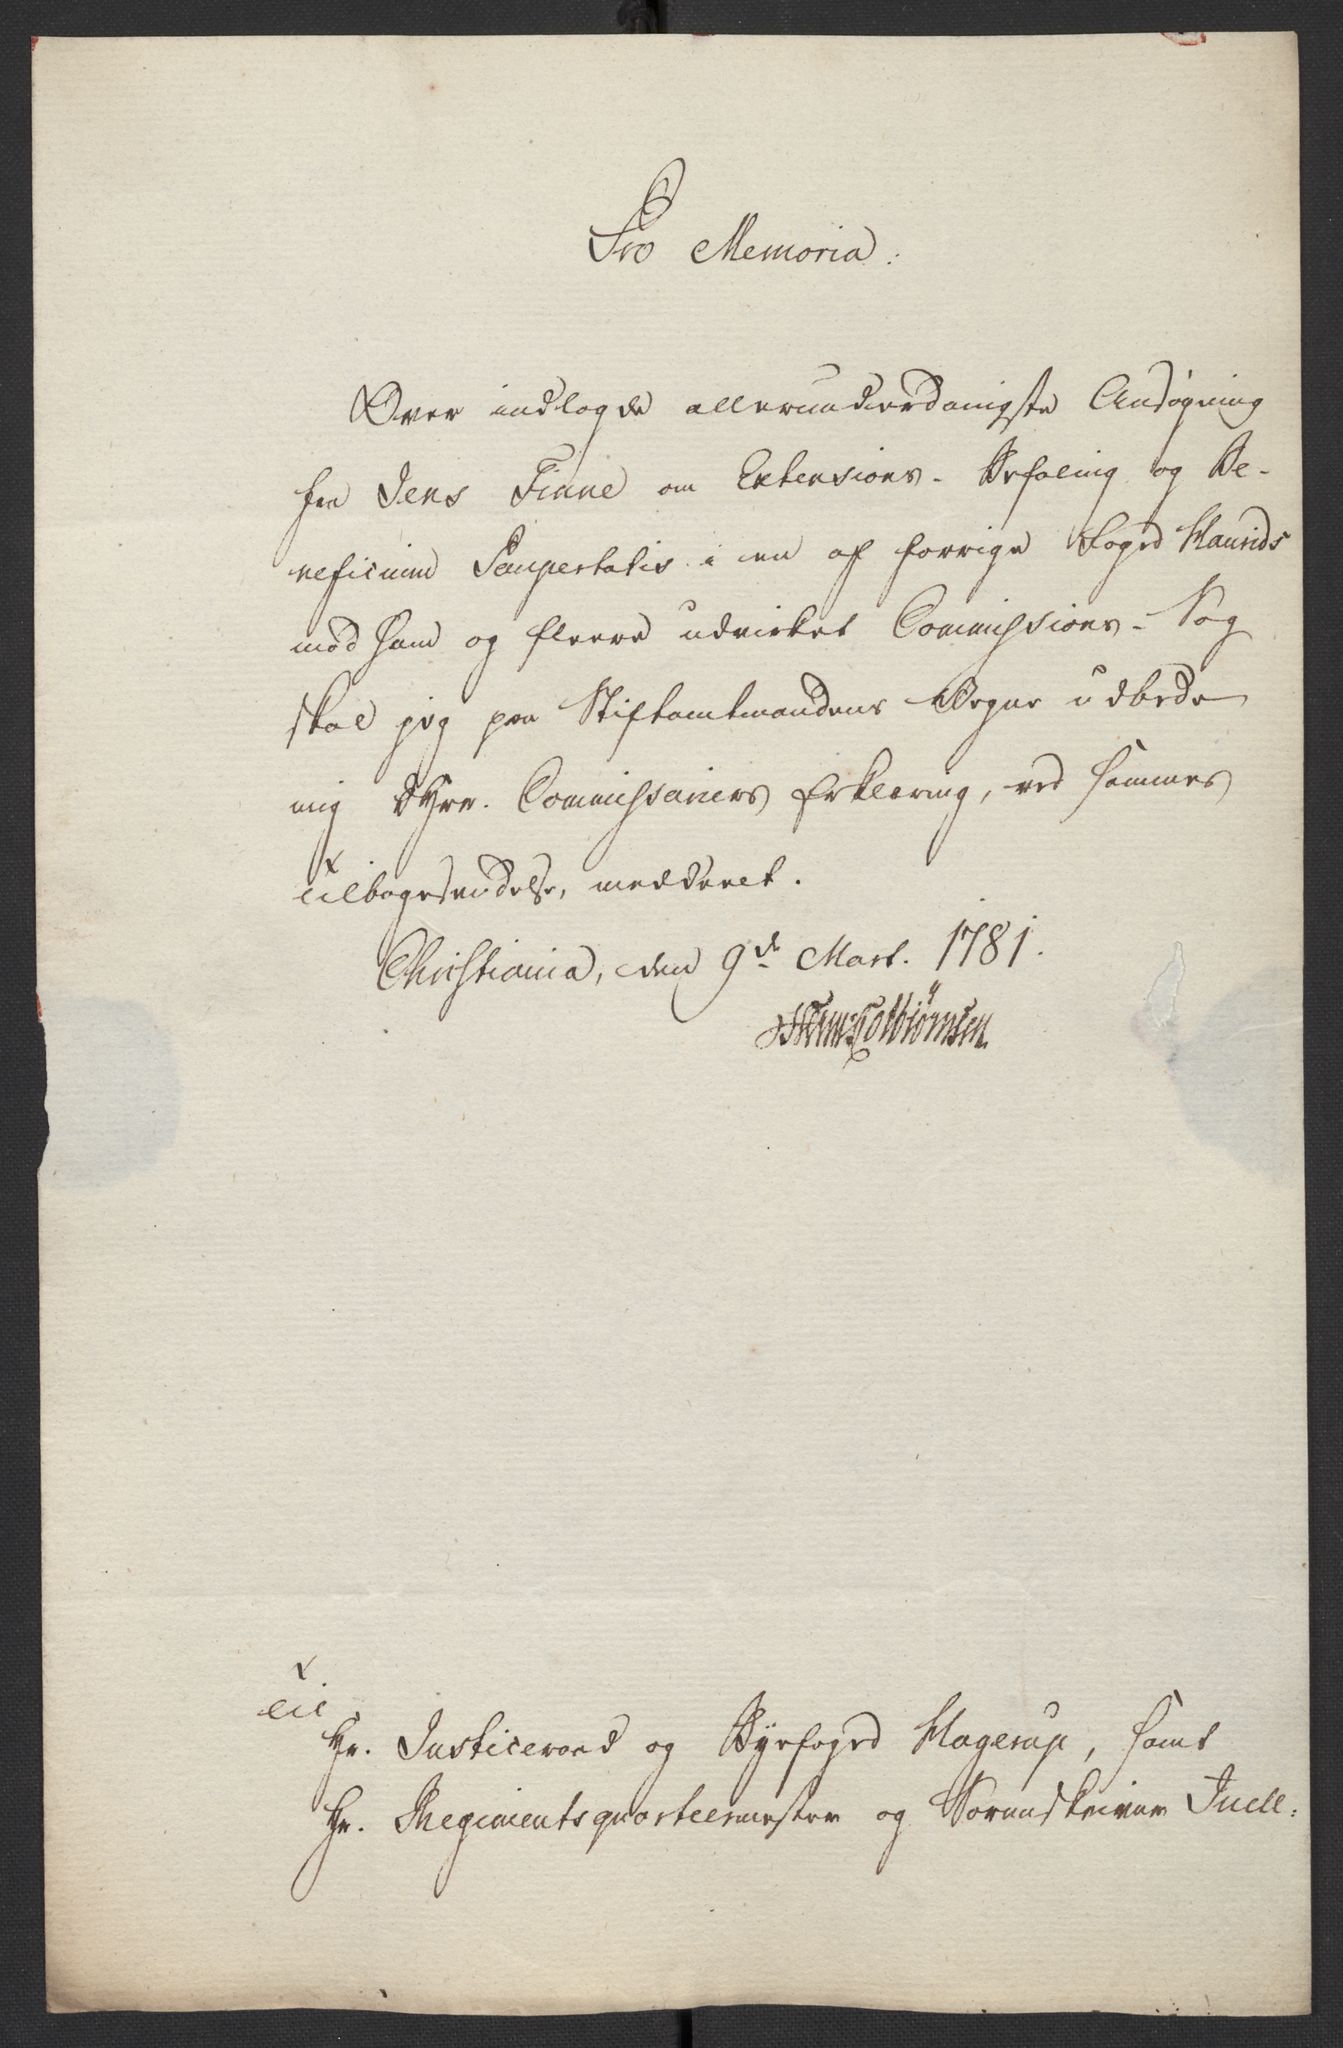 Pro Memoria:
Over indlagde allerunderdanigste Ansøgning
fra Jens Finne om Extensions-Befaling og Be-
neficium Paupertatis i en af forrige Foged
mod ham og fleere udvirket Commissions-Sag
skal jeg paa Stiftamtmandens Vegne udbede
mig DHrr. Commissariers Erklæring, ved sammes
tilbagesendelse, meddeelt.
Christiania, den 9de Mart. 1781.
Colbiørnsen
til
Hr. Justiceraad og Byefoged Hagerup, samt
Hr. Regimentsquarteermester og Sorenskriver Juell: